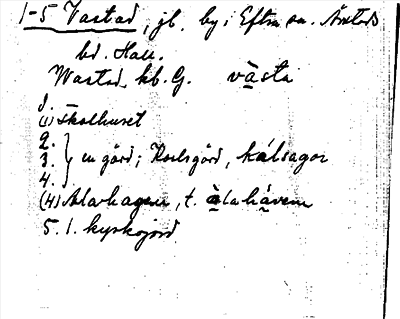 1-5 Vastad, jb. by i Eftra sn. Årstads
hd. Hall.
Wastad, kb. G. våsta
1.
(1) Skolhuset
2.
3. } en gård; Karlsgård, kálsagor
4.
(4) Alarhagen, t. àlahàvem
5. 1. kyrkojord